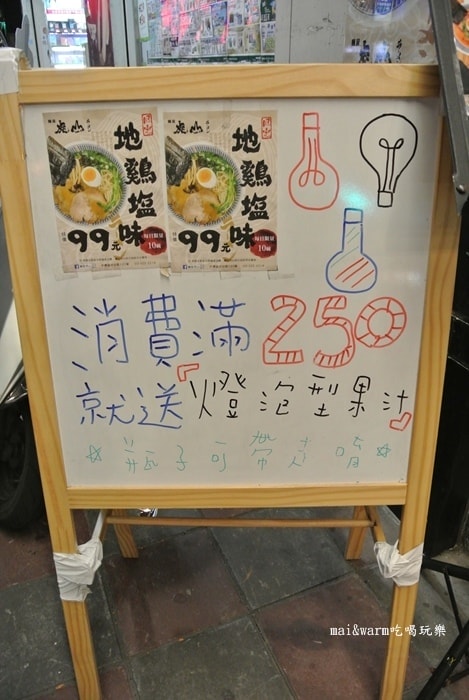 地鷄塩味
99元
每日限量
10碗
地鷄塩味
99元
每日限量
10碗
消費滿250
就送「燈泡型果汁
☆瓶子可帶走唷☆
mai&warm吃喝玩樂